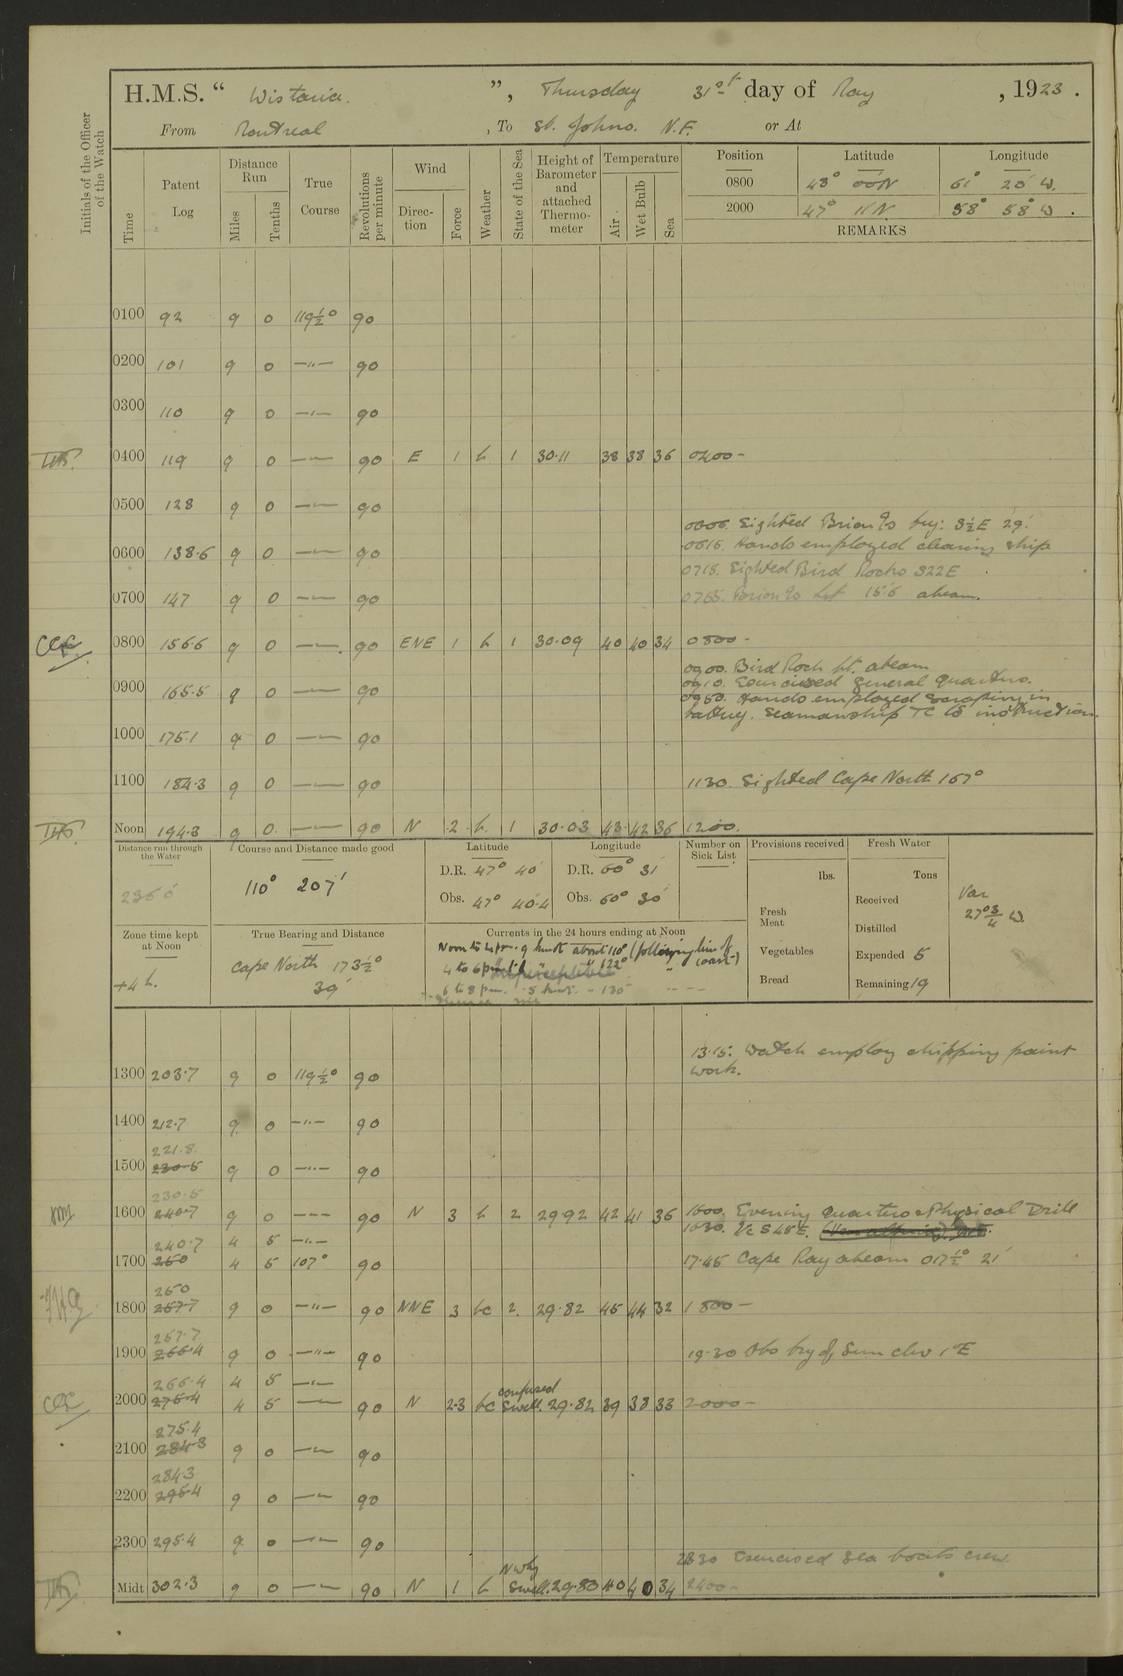 H.M.S. “ Wistaria. ”, Thursday 31st day of May, 1923.
From Montreal, To St. Johns. N.F. or At
Initials of the Officer of the Watch
Time
Patent Log
Distance Run
Miles
Tenths
True Course
Revolutions per minute
Wind
Direction
Force
Weather
State of the Sea
Height of Barometer and attached Thermometer
Temperature
Air
Wet Bulb
Sea
Position Latitude Longitude
0800 48° 00 N 61° 20' W.
2000 47° 11' N 58° 58' W.
REMARKS
0100 92 9 0 119½° 90
0200 101 9 0 —"— 90
0300 110 9 0 —"— 90
0400 119 9 0 —"— 90 E 1 b 1 30.11 38 38 36 0400 -
0500 128 9 0 —"— 90
Sighted Brion Is brg: S½E 29'.
0600 138.6 9 0 —"— 90
0615. Hands employed cleaning ship
0715. Sighted Bird Rocks S22E
0700 147 9 0 —"— 90
0755. Brion Is Lt 15.6 abeam.
0800 156.6 9 0 —"— 90 ENE 1 b 1 30.09 40 40 34 0800 -
0900. Bird Rock Lt. abeam
0900 165.5 9 0 —"— 90
0910. Exercised General Quarters.
0950. Hands employed scraping in
battery. Seamanship TC to instruction.
1000 175.1 9 0 —"— 90
1100 184.3 9 0 —"— 90
1130. Sighted Cape North 167°
Noon 194.3 9 0 —"— 90 N 2 b. 1 30.03 43 42 36 1200.
Distance run through the Water
Course and Distance made good
110° 207'
Latitude
D.R. 47° 40'
Obs. 47° 40.4
Longitude
D.R. 60° 31'
Obs. 60° 30'
Number on Sick List
Provisions received
lbs.
Fresh Meat
Vegetables
Bread
Fresh Water
Tons
Received
Distilled
Expended 5
Remaining 19
Var
27°¾ W.
Zone time kept at Noon
+4 h.
True Bearing and Distance
Cape North 173½°
39'
Currents in the 24 hours ending at Noon
Noon to 4 pm. .9 knot about 110° (following line of coast)
4 to 6 pm 122°
6 to 8 pm. .5 knot. - 130°
13.15: Watch employ chipping paint
work.
1300 203.7 9 0 119½° 90
1400 212.7 9 0 —"— 90
221.8.
1500 230.5 9 0 —"— 90
230.5
1600 240.7 9 0 —"— 90 N 3 b 2 29.92 42 41 36 1600. Evening Quarters & Physical Drill
1630. A/c S48E.
240.7 4 5 —"—
1700 250 4 5 107° 90
17.45 Cape Ray abeam 017½° 21'
250
1800 257.7 9 0 —"— 90 NNE 3 bc 2. 29.82 45 44 32 1800 —
257.7
1900 266.4 9 0 —"— 90
19.30 Obs brg of Sun
266.4 4 5 —"—
2000 275.4 4 5 —"— 90 N 2-3 bc confused Swell. 29.82 39 38 33 2000 —
275.4
2100 284.3 9 0 —"— 90
284.3
2200 295.4 9 0 —"— 90
2300 295.4 9 0 —"— 90
2330 Exercised sea boats crew
Midt 302.3 9 0 —"— 90 N 1 b Nwly Swell. 29.80 40 40 34 2400 -